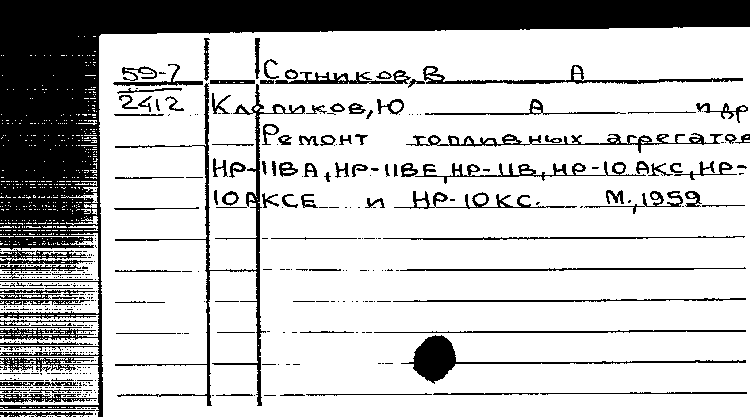 59-7 Сотников, В А
2412 Клепиков, Ю А и др
Ремонт топливных агрегатов
НР-11ВА, НР-11ВЕ, НР-11В, НР-10 АКС, НР-
10АКСЕ и НР-10КС. М., 1959